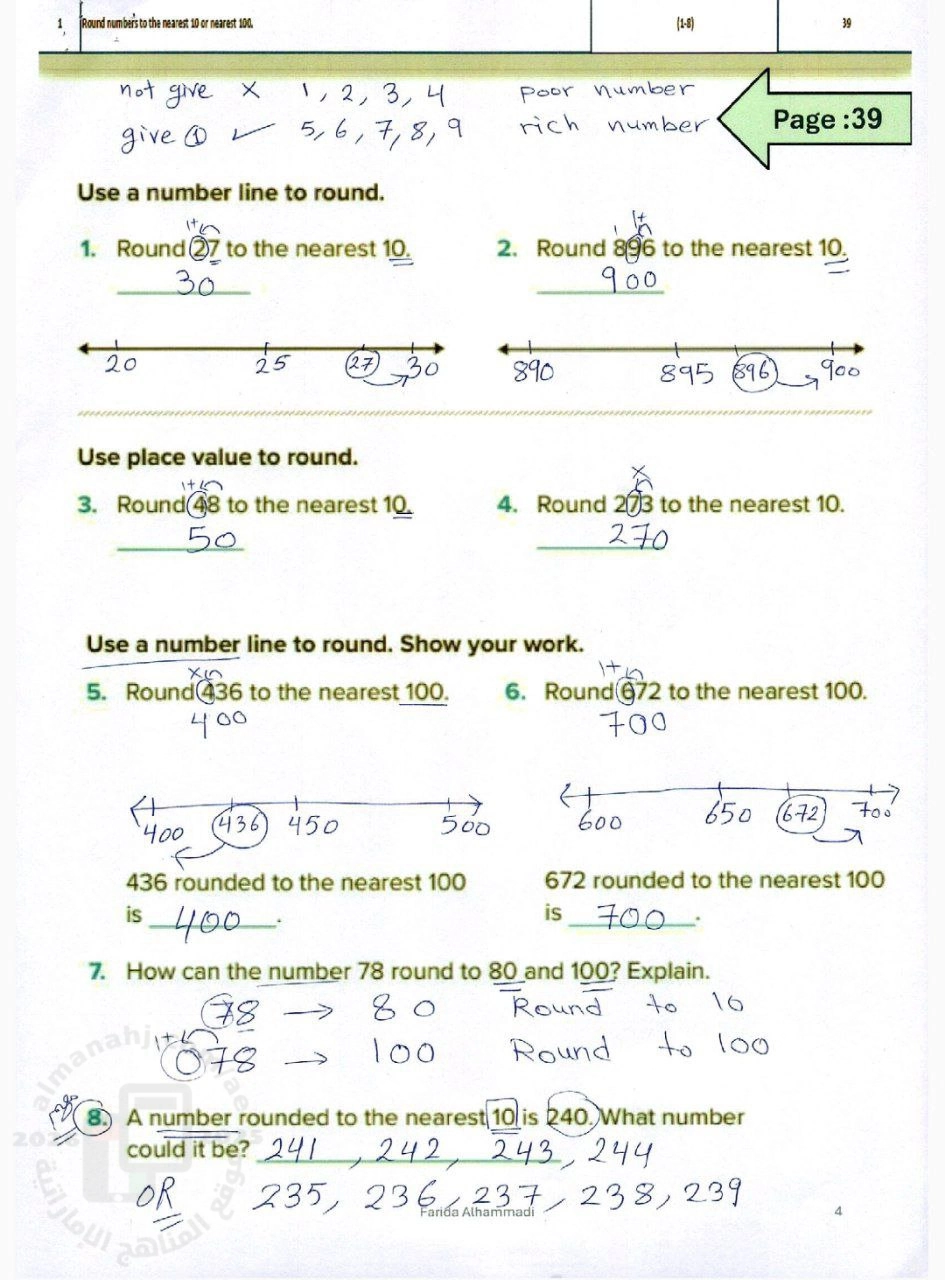 1 Round numbers to the nearest 10 or nearest 100. (1-8) 39
not give × 1, 2, 3, 4 poor number
give ① ✓ 5, 6, 7, 8, 9 rich number
Page :39
Use a number line to round.
1+ 1 1+
1. Round 27 to the nearest 10. 2. Round 896 to the nearest 10.
30 900
20 25 27 30 890 895 896 900
Use place value to round.
1+ ×
3. Round 48 to the nearest 10. 4. Round 273 to the nearest 10.
50 270
Use a number line to round. Show your work.
× 1+
5. Round 436 to the nearest 100. 6. Round 672 to the nearest 100.
400 700
400 436 450 500 600 650 672 700
436 rounded to the nearest 100 672 rounded to the nearest 100
is 400. is 700.
7. How can the number 78 round to 80 and 100? Explain.
78 → 80 Round to 10
1+
078 → 100 Round to 100
8. A number rounded to the nearest 10 is 240. What number
could it be? 241, 242, 243, 244
OR 235, 236, 237, 238, 239
Farida Alhammadi 4
almanahj.com/ae
موقع المناهج الإماراتية